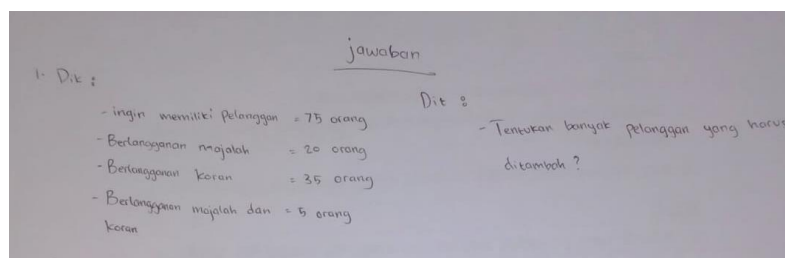 jawaban
1. Dik :
- ingin memiliki pelanggan = 75 orang
- Berlangganan majalah = 20 orang
- Berlangganan koran = 35 orang
- Berlangganan majalah dan = 5 orang
koran
Dit :
- Tentukan banyak pelanggan yang harus
ditambah ?